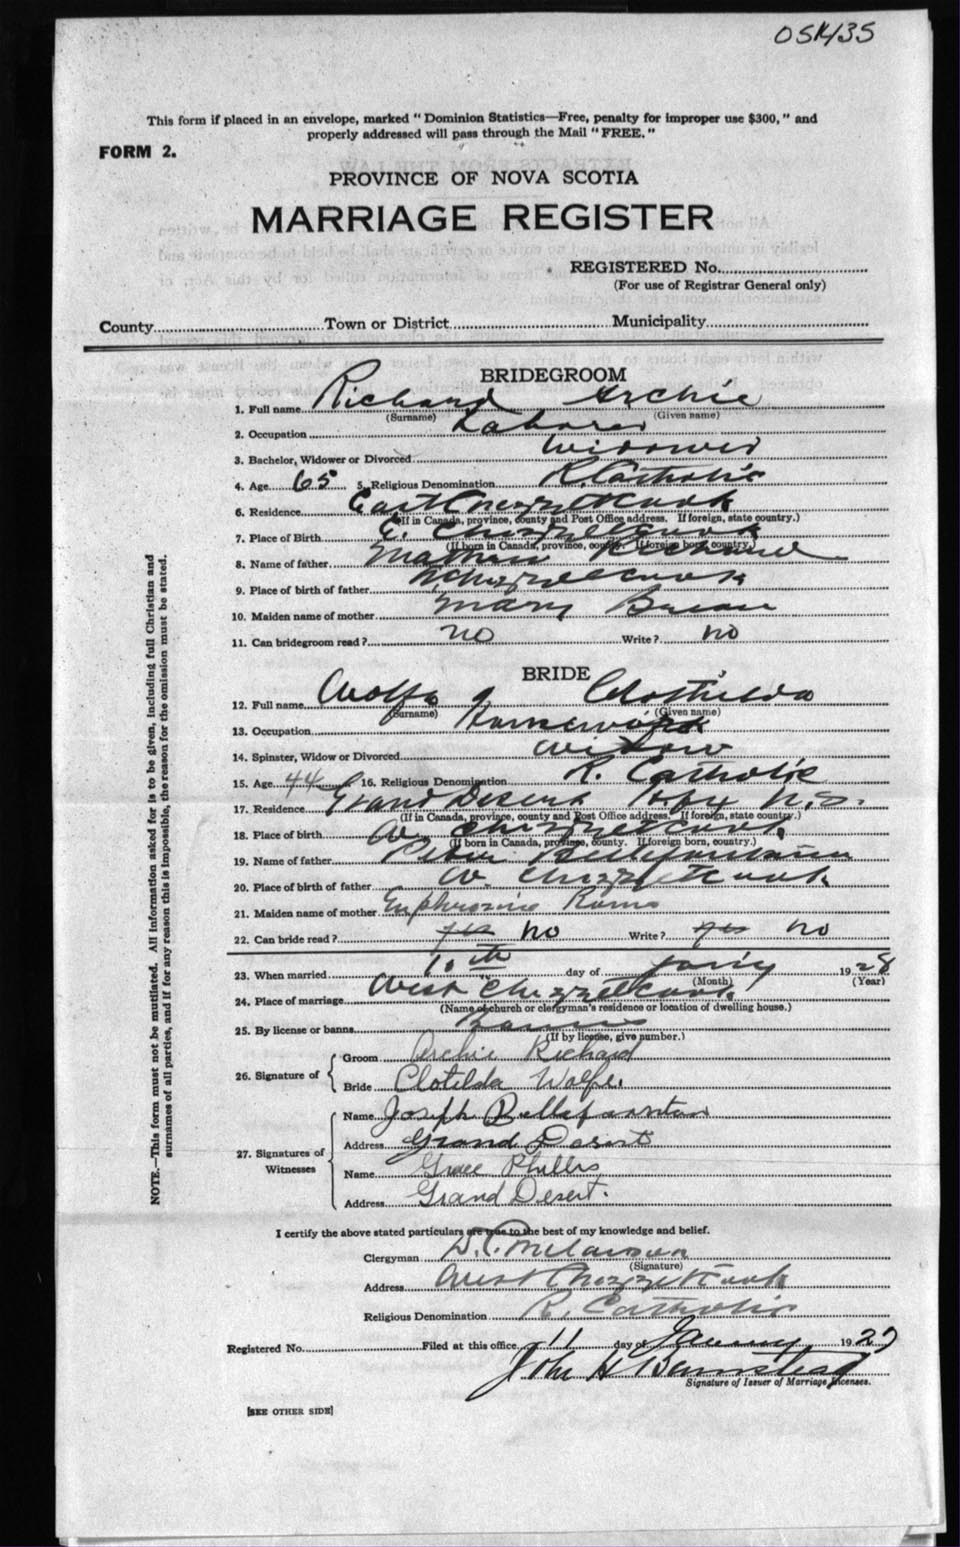 051435
This form if placed in an envelope, marked "Dominion Statistics—Free, penalty for improper use $300," and
properly addressed will pass through the Mail "FREE."
FORM 2.
PROVINCE OF NOVA SCOTIA
MARRIAGE REGISTER
REGISTERED No.
(For use of Registrar General only)
County Town or District Municipality
BRIDEGROOM
1. Full name Richard Archie
(Surname) (Given name)
2. Occupation Laborer
3. Bachelor, Widower or Divorced Widower
4. Age 65 5. Religious Denomination R. Catholic
6. Residence East Chezzetcook
(If in Canada, province, county and Post Office address. If foreign, state country.)
7. Place of Birth E. Chezzetcook
(If born in Canada, province, county. If foreign born, country.)
8. Name of father Richard
9. Place of birth of father Chezzetcook
10. Maiden name of mother Mary
11. Can bridegroom read? no Write? no
BRIDE
12. Full name Wolfe Clothilda
(Surname) (Given name)
13. Occupation Housework
14. Spinster, Widow or Divorced Widow
15. Age 44 16. Religious Denomination R. Catholic
17. Residence Grand Desert Hfx N.S.
(If in Canada, province, county and Post Office address. If foreign, state country.)
18. Place of birth W. Chezzetcook
(If born in Canada, province, county. If foreign born, country.)
19. Name of father Peter Bellefontaine
20. Place of birth of father W. Chezzetcook
21. Maiden name of mother Euphrosine Roma
22. Can bride read? yes no Write? yes no
23. When married 10th day of Jany 1928
(Month) (Year)
24. Place of marriage West Chezzetcook
(Name of church or clergyman's residence or location of dwelling house.)
25. By license or banns Banns
(If by license, give number.)
26. Signature of
Groom Archie Richard
Bride Clotilda Wolfe.
27. Signatures of Witnesses
Name Joseph Bellefountain
Address Grand Desert
Name Grace Phillis
Address Grand Desert.
I certify the above stated particulars are true to the best of my knowledge and belief.
Clergyman
(Signature)
Address West Chezzetcook
Religious Denomination R. Catholic
Registered No. Filed at this office 11 day of January 1927
John H Barnstead
Signature of Issuer of Marriage Licenses.
[SEE OTHER SIDE]
NOTE.—This form must not be mutilated. All information asked for is to be given, including full Christian and
surnames of all parties, and if for any reason this is impossible, the reason for the omission must be stated.